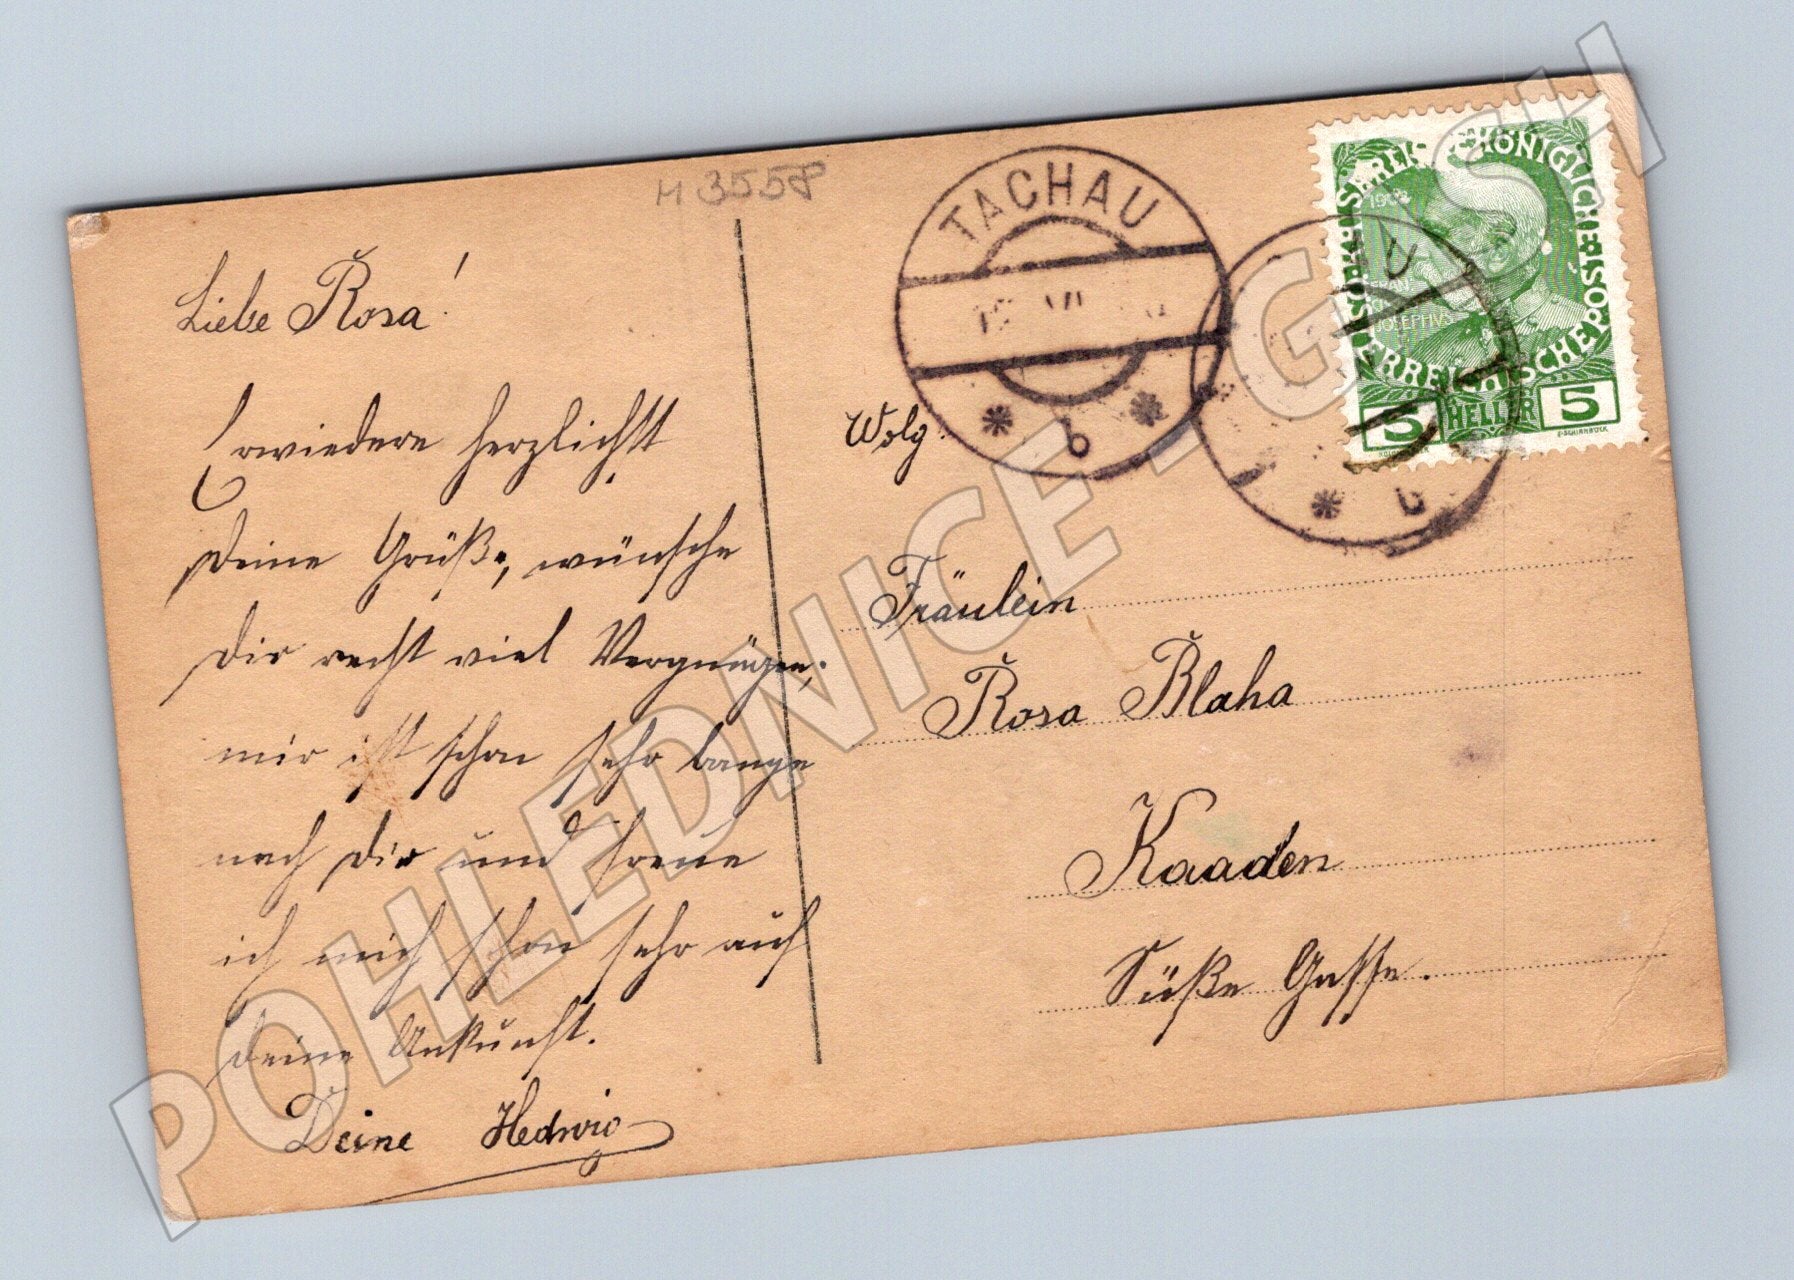 M 3558
Liebe Rosa!
Erwiedere herzlichst
Deine Grüße, wünsche
Dir recht viel Vergnügen;
mir ist schon sehr bange
nach Dir und freue
ich mich schon sehr auf
Deine Ankunft.
Deine Hedwig
TACHAU
VI
b
Wolg.
Fräulein
Rosa Blaha
Kaaden
Süße Gasse.
KAISERLICHE KÖNIGLICHE ÖSTERREICHISCHE POST
FRAN
JOSEPHVS
5 HELLER 5
POHLEDNICE - GASH